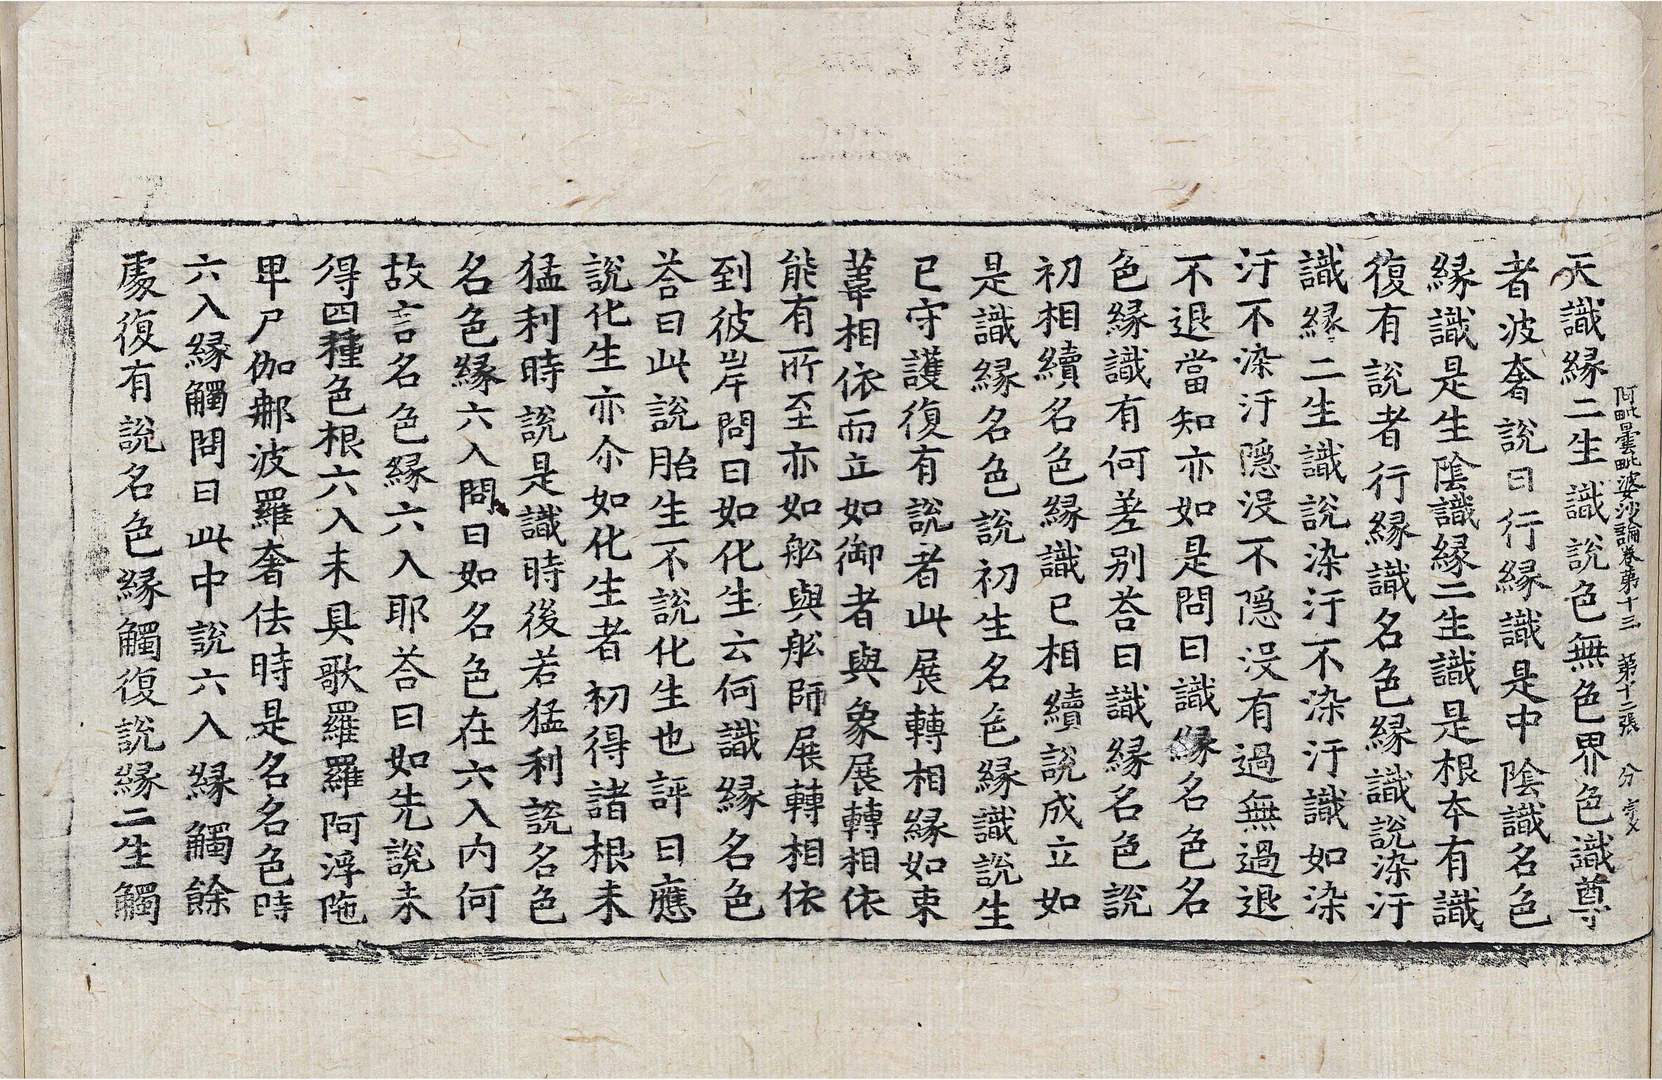 阿毗曇毗婆沙論卷第十三 第十二張 分
天識緣二生識說色無色界色識尊
者波奢說曰行緣識是中陰識名色
緣識是生陰識緣二生識是根本有識
復有說者行緣識名色緣識說染汙
識緣二生識說染汙不染汙識如染
汙不染汙隱沒不隱沒有過無過退
不退當知亦如是問曰識緣名色名
色緣識有何差別荅曰識緣名色說
初相續名色緣識已相續說成立如
是識緣名色說初生名色緣識說生
已守護復有說者此展轉相緣如束
葦相依而立如御者與象展轉相依
能有所至亦如舩與舩師展轉相依
到彼岸問曰如化生云何識緣名色
荅曰此說胎生不說化生也評曰應
說化生亦尒如化生者初得諸根未
猛利時說是識時後若猛利說名色
名色緣六入問曰如名色在六入內何
故言名色緣六入耶荅曰如先說未
得四種色根六入未具歌羅羅阿浮陁
卑尸伽郍波羅奢佉時是名名色時
六入緣觸問曰此中說六入緣觸餘
處復有說名色緣觸復說緣二生觸